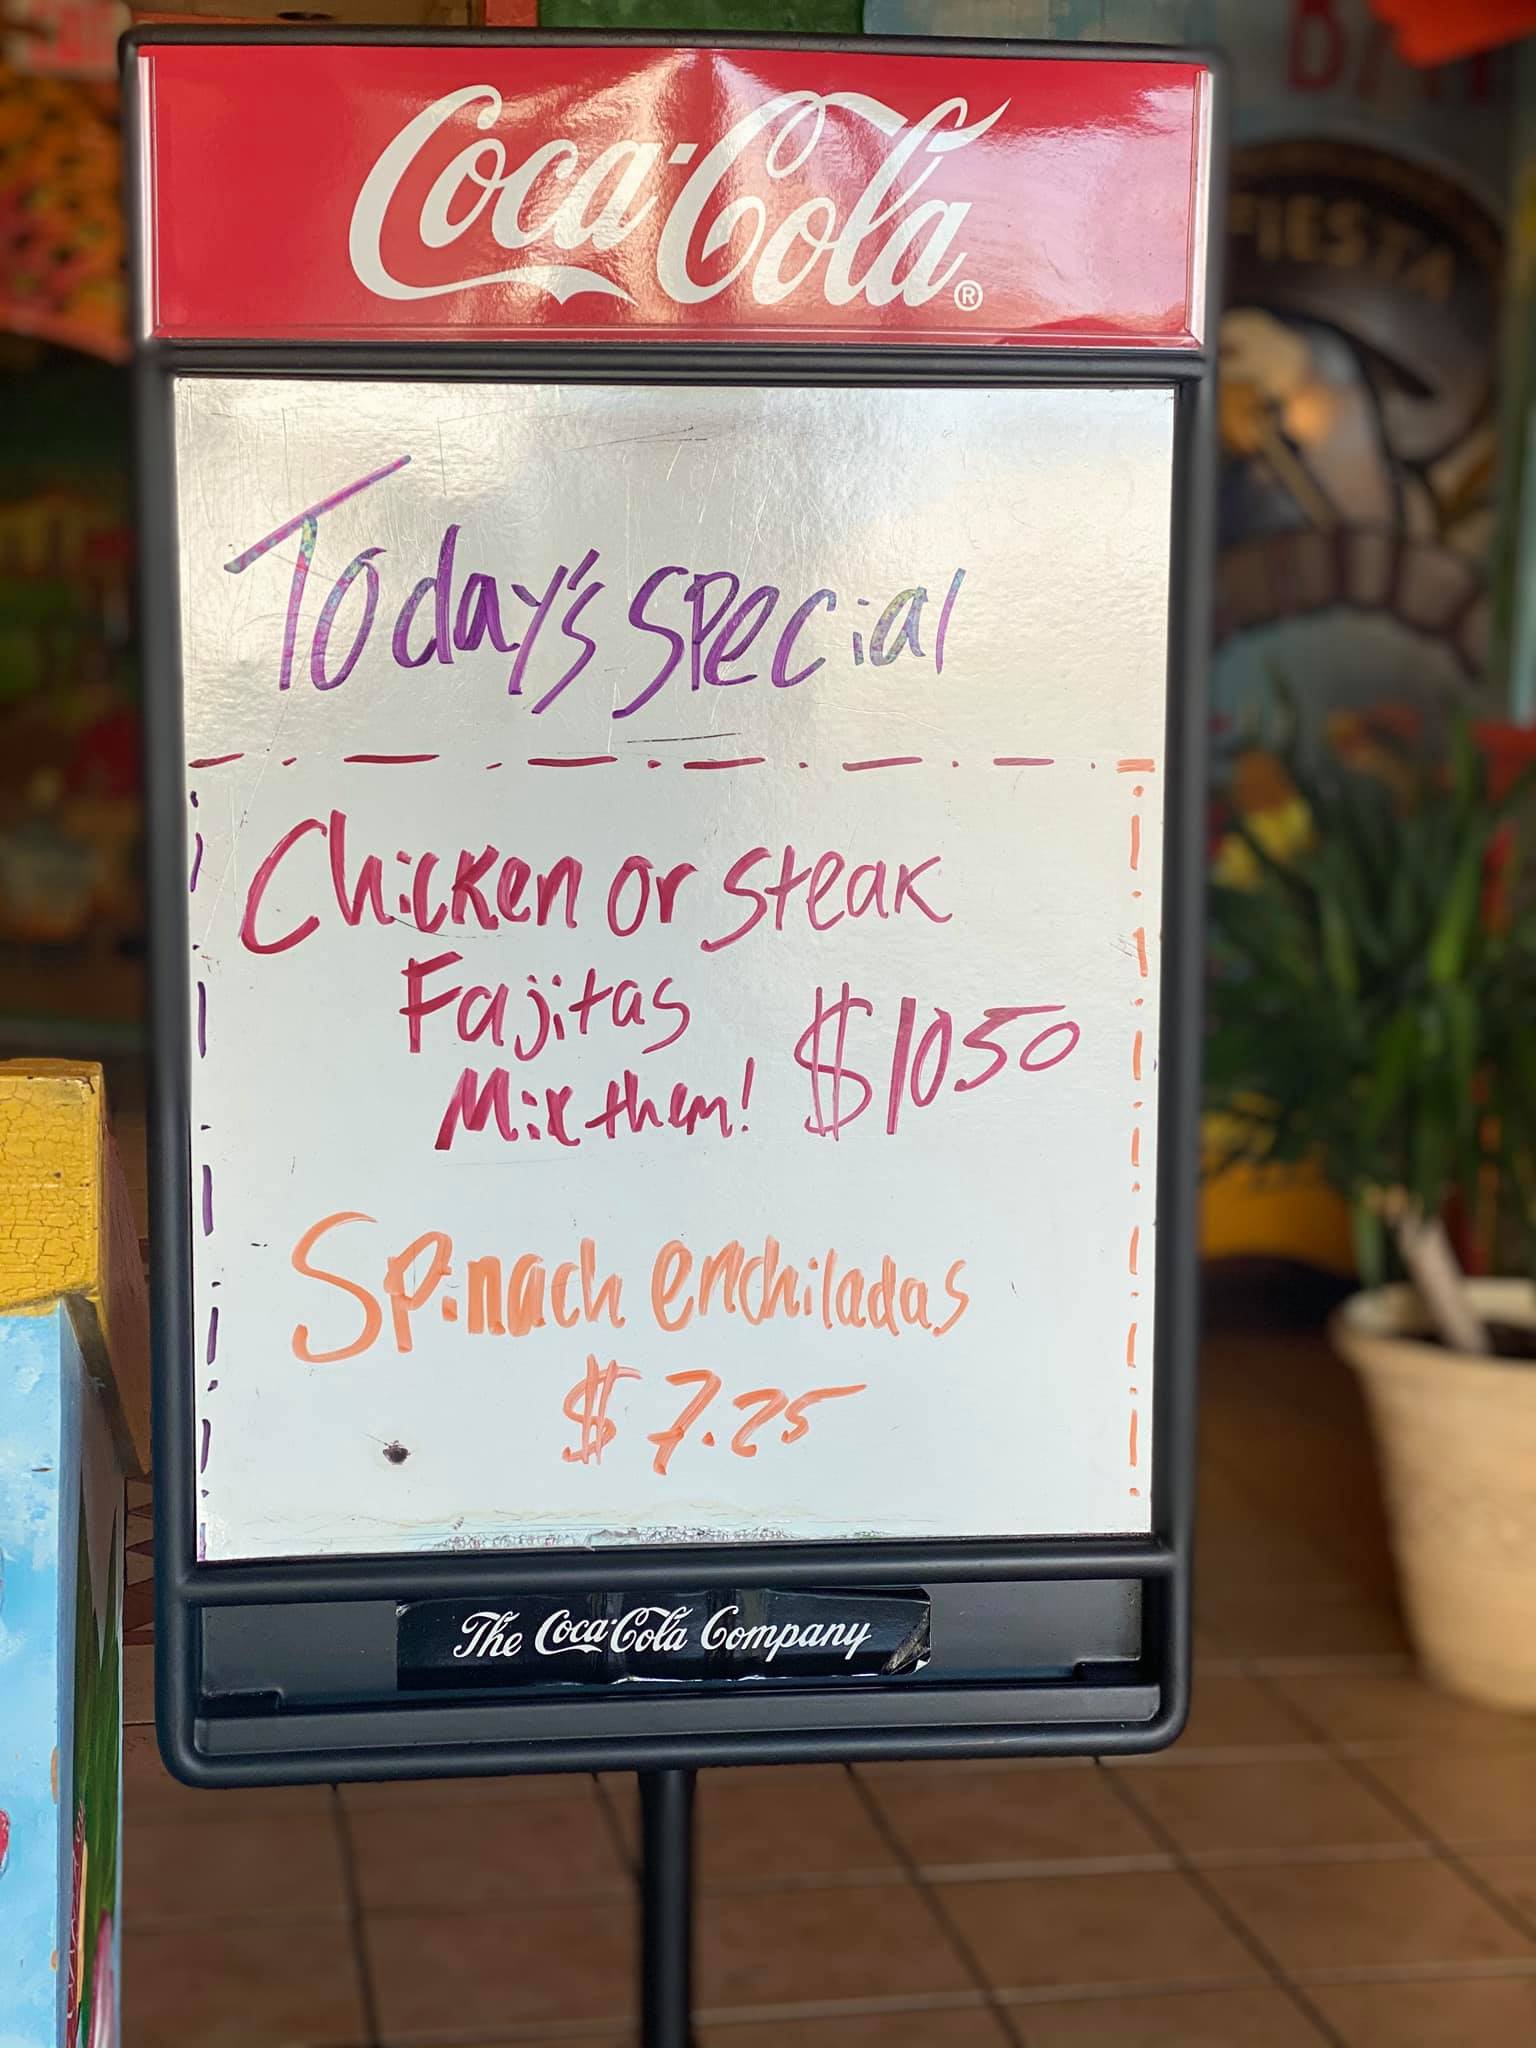 Coca-Cola®
FIESTA
Today's special
Chicken or steak
Fajitas
Mix them! $1050
Spinach enchiladas
$7.25
The Coca-Cola Company